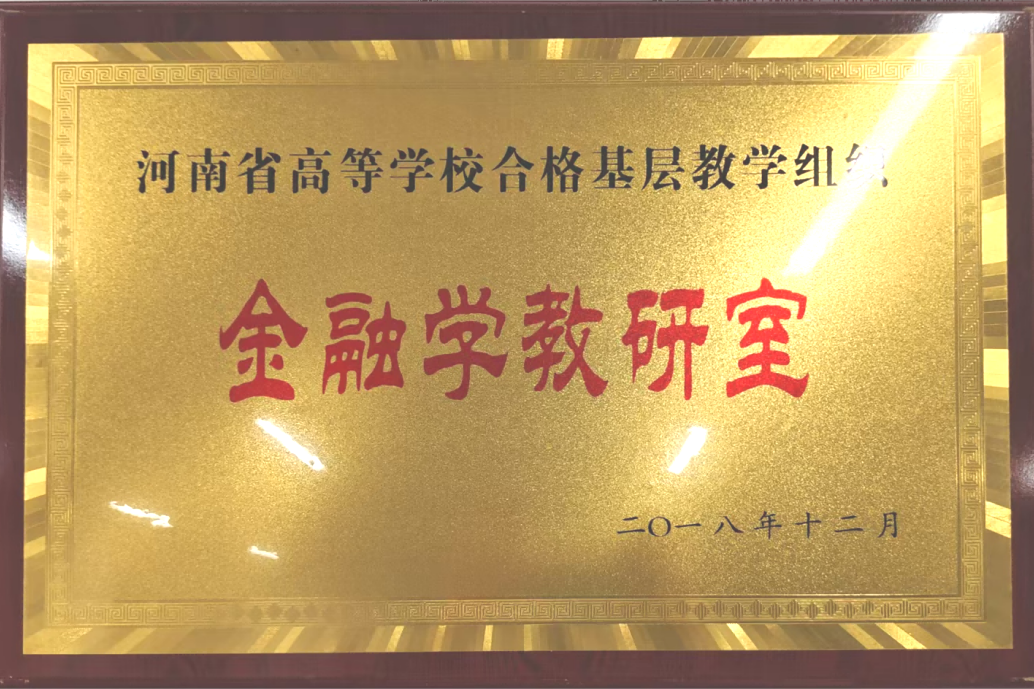 河南省高等学校合格基层教学组织
金融学教研室
二〇一八年十二月